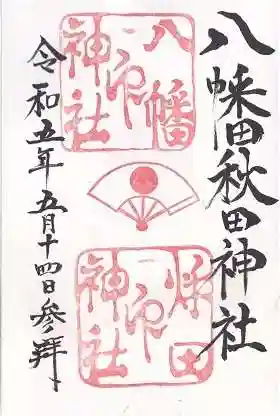 八幡秋田神社
八幡
神社
印
田
神社
印
令和五年五月十四日参拝